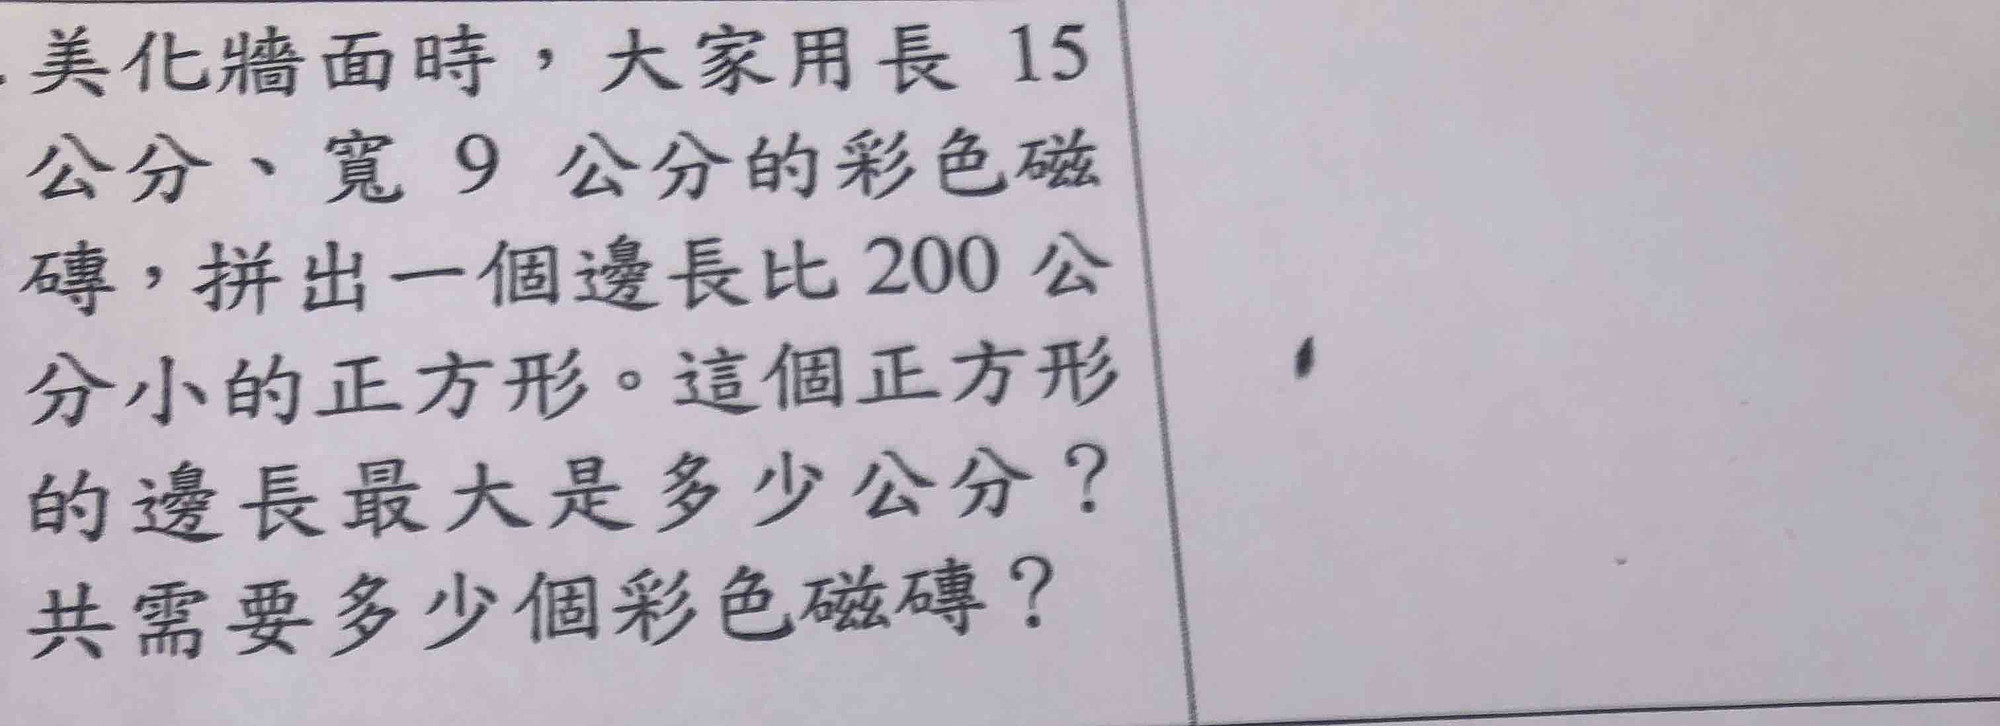 美化牆面時，大家用長 15
公分、寬 9 公分的彩色磁
磚，拼出一個邊長比 200 公
分小的正方形。這個正方形
的邊長最大是多少公分？
共需要多少個彩色磁磚？